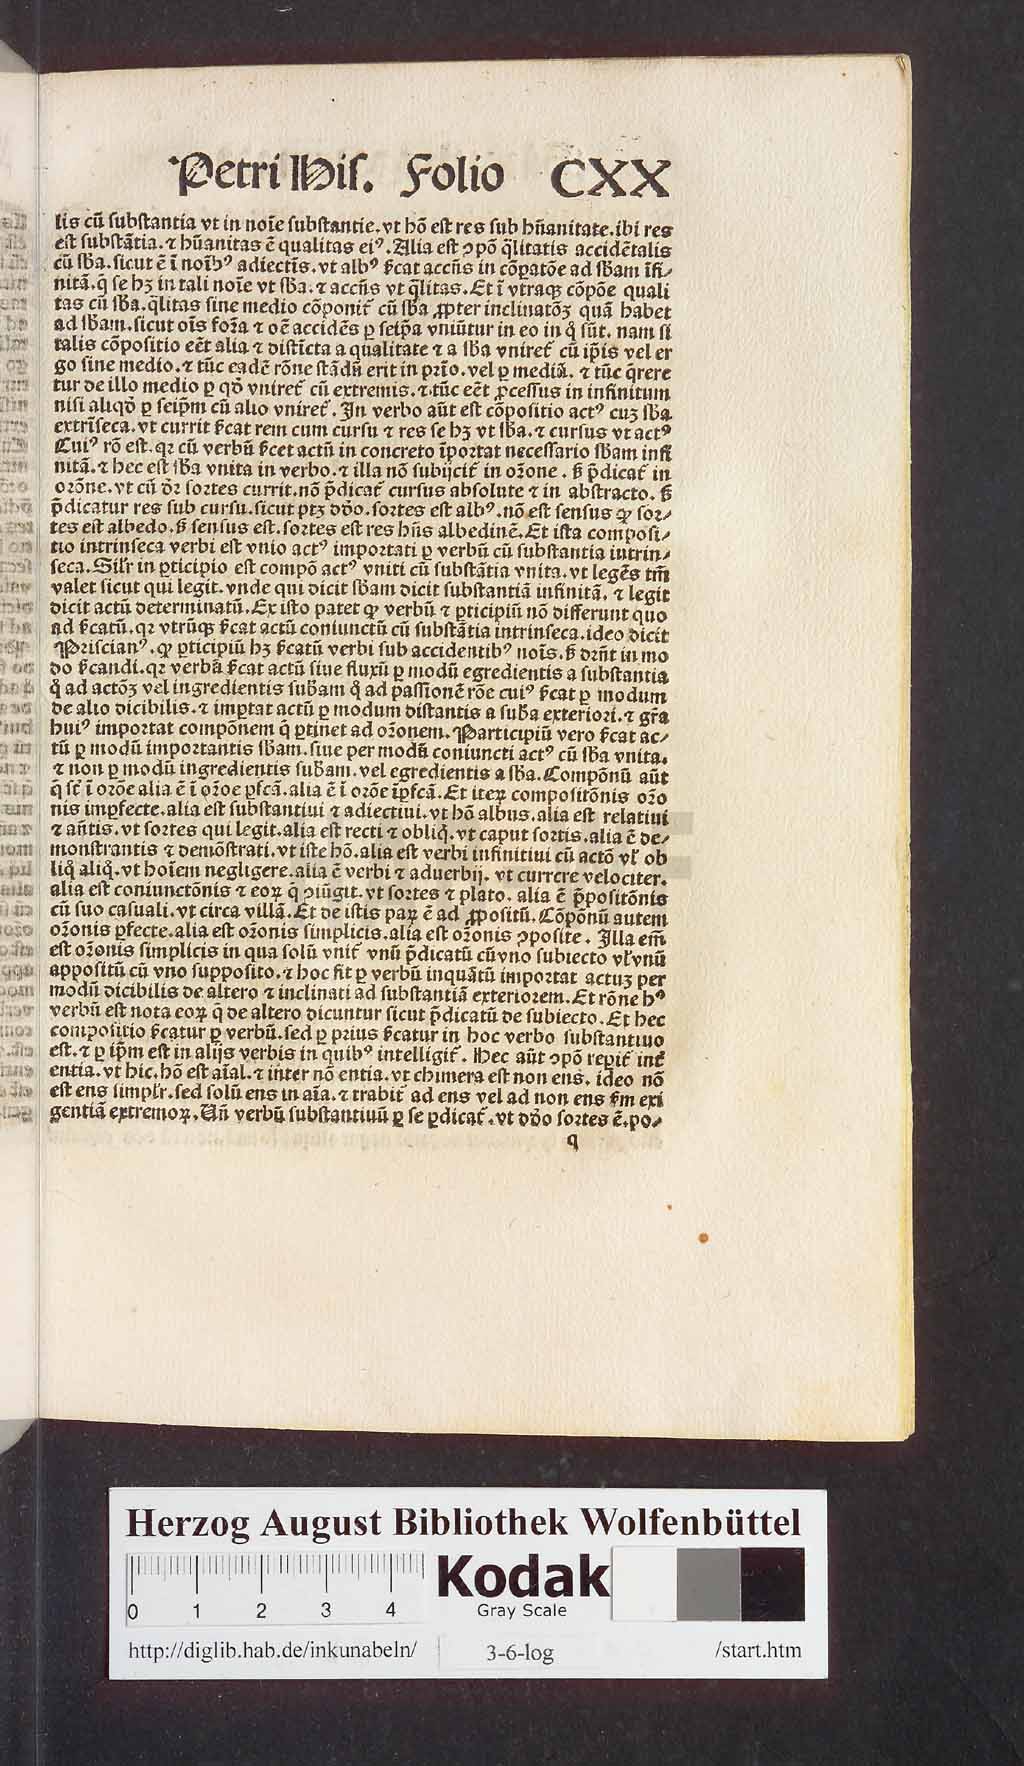 Petri His. Folio CXX
lis cū substantia vt in noīe substantie. vt hō est res sub hūanitate. ibi res
est substātia. ⁊ hūanitas ē qualitas eiꝰ. Alia est ↄpō q̄litatis accidētalis
cū sba. sicut ē ī noībꝰ adiectīs. vt albꝰ s̄cat accn̄s in cōpatōe ad sbam īfi⸗
nitā. q̄ se hꝫ in tali noīe vt sba. ⁊ accn̄s vt q̄litas. Et ī vtraqꝫ cōpōe quali
tas cū sba. q̄litas sine medio cōponit᷑ cū sba ꝓpter inclinatōꝫ quā habet
ad sbam. sicut oīs forma ⁊ oē accidēs ꝑ seip̄a vniūtur in eo in q̊ sūt. nam si
talis cōpositio eēt alia ⁊ distīcta a qualitate ⁊ a sba vniret᷑ cū ip̄is vel er
go sine medio. ⁊ tūc eadē rōne stādū erit in prīo. vel ꝑ mediā. ⁊ tūc q̄rere
tur de illo medio ꝑ qd̄ vniret᷑ cū extremis. ⁊ tūc eēt ꝓcessus in infinitum
nisi aliqd̄ ꝑ seip̄m cū alio vniret᷑. In verbo aūt est cōpositio actꝰ cuꝫ sba
extrīseca. vt currit s̄cat rem cum cursu ⁊ res se hꝫ vt sba. ⁊ cursus vt actꝰ
Cuiꝰ rō est. qꝛ cū verbū s̄cet actū in concreto īportat necessario sbam infi
nitā. ⁊ hec est sba vnita in verbo. ⁊ illa nō subijcit᷑ in orōne. s̄ p̄dicat᷑ in
orōne. vt cū dr̄ sortes currit. nō p̄dicat᷑ cursus absolute ⁊ in abstracto. s̄
p̄dicatur res sub cursu. sicut ptꝫ dd̄o. sortes est albꝰ. nō est sensus ꝙ sor⸗
tes est albedo. s̄ sensus est. sortes est res hn̄s albedinē. Et ista composi⸗
tio intrinseca verbi est vnio actꝰ importati ꝑ verbū cū substantia intrin⸗
seca. Silr̄ in ꝑticipio est compō actꝰ vniti cū substātia vnita. vt legēs tm̄
valet sicut qui legit. vnde qui dicit sbam dicit substantiā infinitā. ⁊ legit
dicit actū determinatū. Ex isto patet ꝙ verbū ⁊ ꝑticipiū nō differunt quo
ad s̄catū. qꝛ vtrūqꝫ s̄cat actū coniunctū cū substātia intrinseca. ideo dicit
Priscianꝰ. ꝙ ꝑticipiū hꝫ s̄catū verbi sub accidentibꝰ noīs. s̄ drn̄t in mo
do s̄candi. qꝛ verbū s̄cat actū siue fluxū ꝑ modū egredientis a substantia
q̊ ad actōꝫ vel ingredientis subam q̊ ad passionē rōe cuiꝰ s̄cat ꝑ modum
de alio dicibilis. ⁊ imꝑtat actū ꝑ modum distantis a suba exteriori. ⁊ gr̄a
huiꝰ importat compōnem q̄ ꝑtinet ad orōnem. Participiū vero s̄cat ac⸗
tū ꝑ modū importantis sbam. siue per modū coniuncti actꝰ cū sba vnita.
⁊ non ꝑ modū ingredientis subam. vel egredientis a sba. Compōnū aūt
q̄ st̄ ī orōe alia ē ī orōe ꝑfcā. alia ē ī orōe īꝑfcā. Et iteꝝ compositōnis orō
nis imꝑfecte. alia est substantiui ⁊ adiectiui. vt hō albus. alia est relatiui
⁊ an̄tis. vt sortes qui legit. alia est recti ⁊ obliq̄. vt caput sortis. alia ē de⸗
monstrantis ⁊ demōstrati. vt iste hō. alia est verbi infinitiui cū actō vl̄ ob
liq̊ aliq̊. vt hoīem negligere. alia ē verbi ⁊ aduerbij. vt currere velociter.
alia est coniunctōnis ⁊ eoꝝ q̄ ↄiūgit. vt sortes ⁊ plato. alia ē p̄positōnis
cū suo casuali. vt circa villā. Et de istis paꝝ ē ad ꝓpositū. Cōpōnū autem
orōnis ꝑfecte. alia est orōnis simplicis. alia est orōnis ↄposite. Illa em̄
est orōnis simplicis in qua solū vnit᷑ vnū p̄dicatū cū vno subiecto vl̄ vnū
appositū cū vno supposito. ⁊ hoc fit ꝑ verbū inquātū importat actuꝫ per
modū dicibilis de altero ⁊ inclinati ad substantiā exteriorem. Et rōne hꝰ
verbū est nota eoꝝ q̄ de altero dicuntur sicut p̄dicatū de subiecto. Et hec
compositio s̄catur ꝑ verbū. sed ꝑ prius s̄catur in hoc verbo substantiuo
est. ⁊ ꝑ ip̄m est in alijs verbis in quibꝰ intelligit᷑. Hec aūt ↄpō reꝑit᷑ int̄
entia. vt hic. hō est aīal. ⁊ inter nō entia. vt chimera est non ens. ideo nō
est ens simplr̄. sed solū ens in aīa. ⁊ trahit᷑ ad ens vel ad non ens s̄m exi
gentiā extremoꝝ. Un̄ verbū substantiuū ꝑ se p̄dicat᷑. vt dd̄o sortes ē. po⸗
q
Herzog August Bibliothek Wolfenbüttel
0 1 2 3 4
Kodak
Gray Scale
http://diglib.hab.de/inkunabeln/ 3-6-log /start.htm